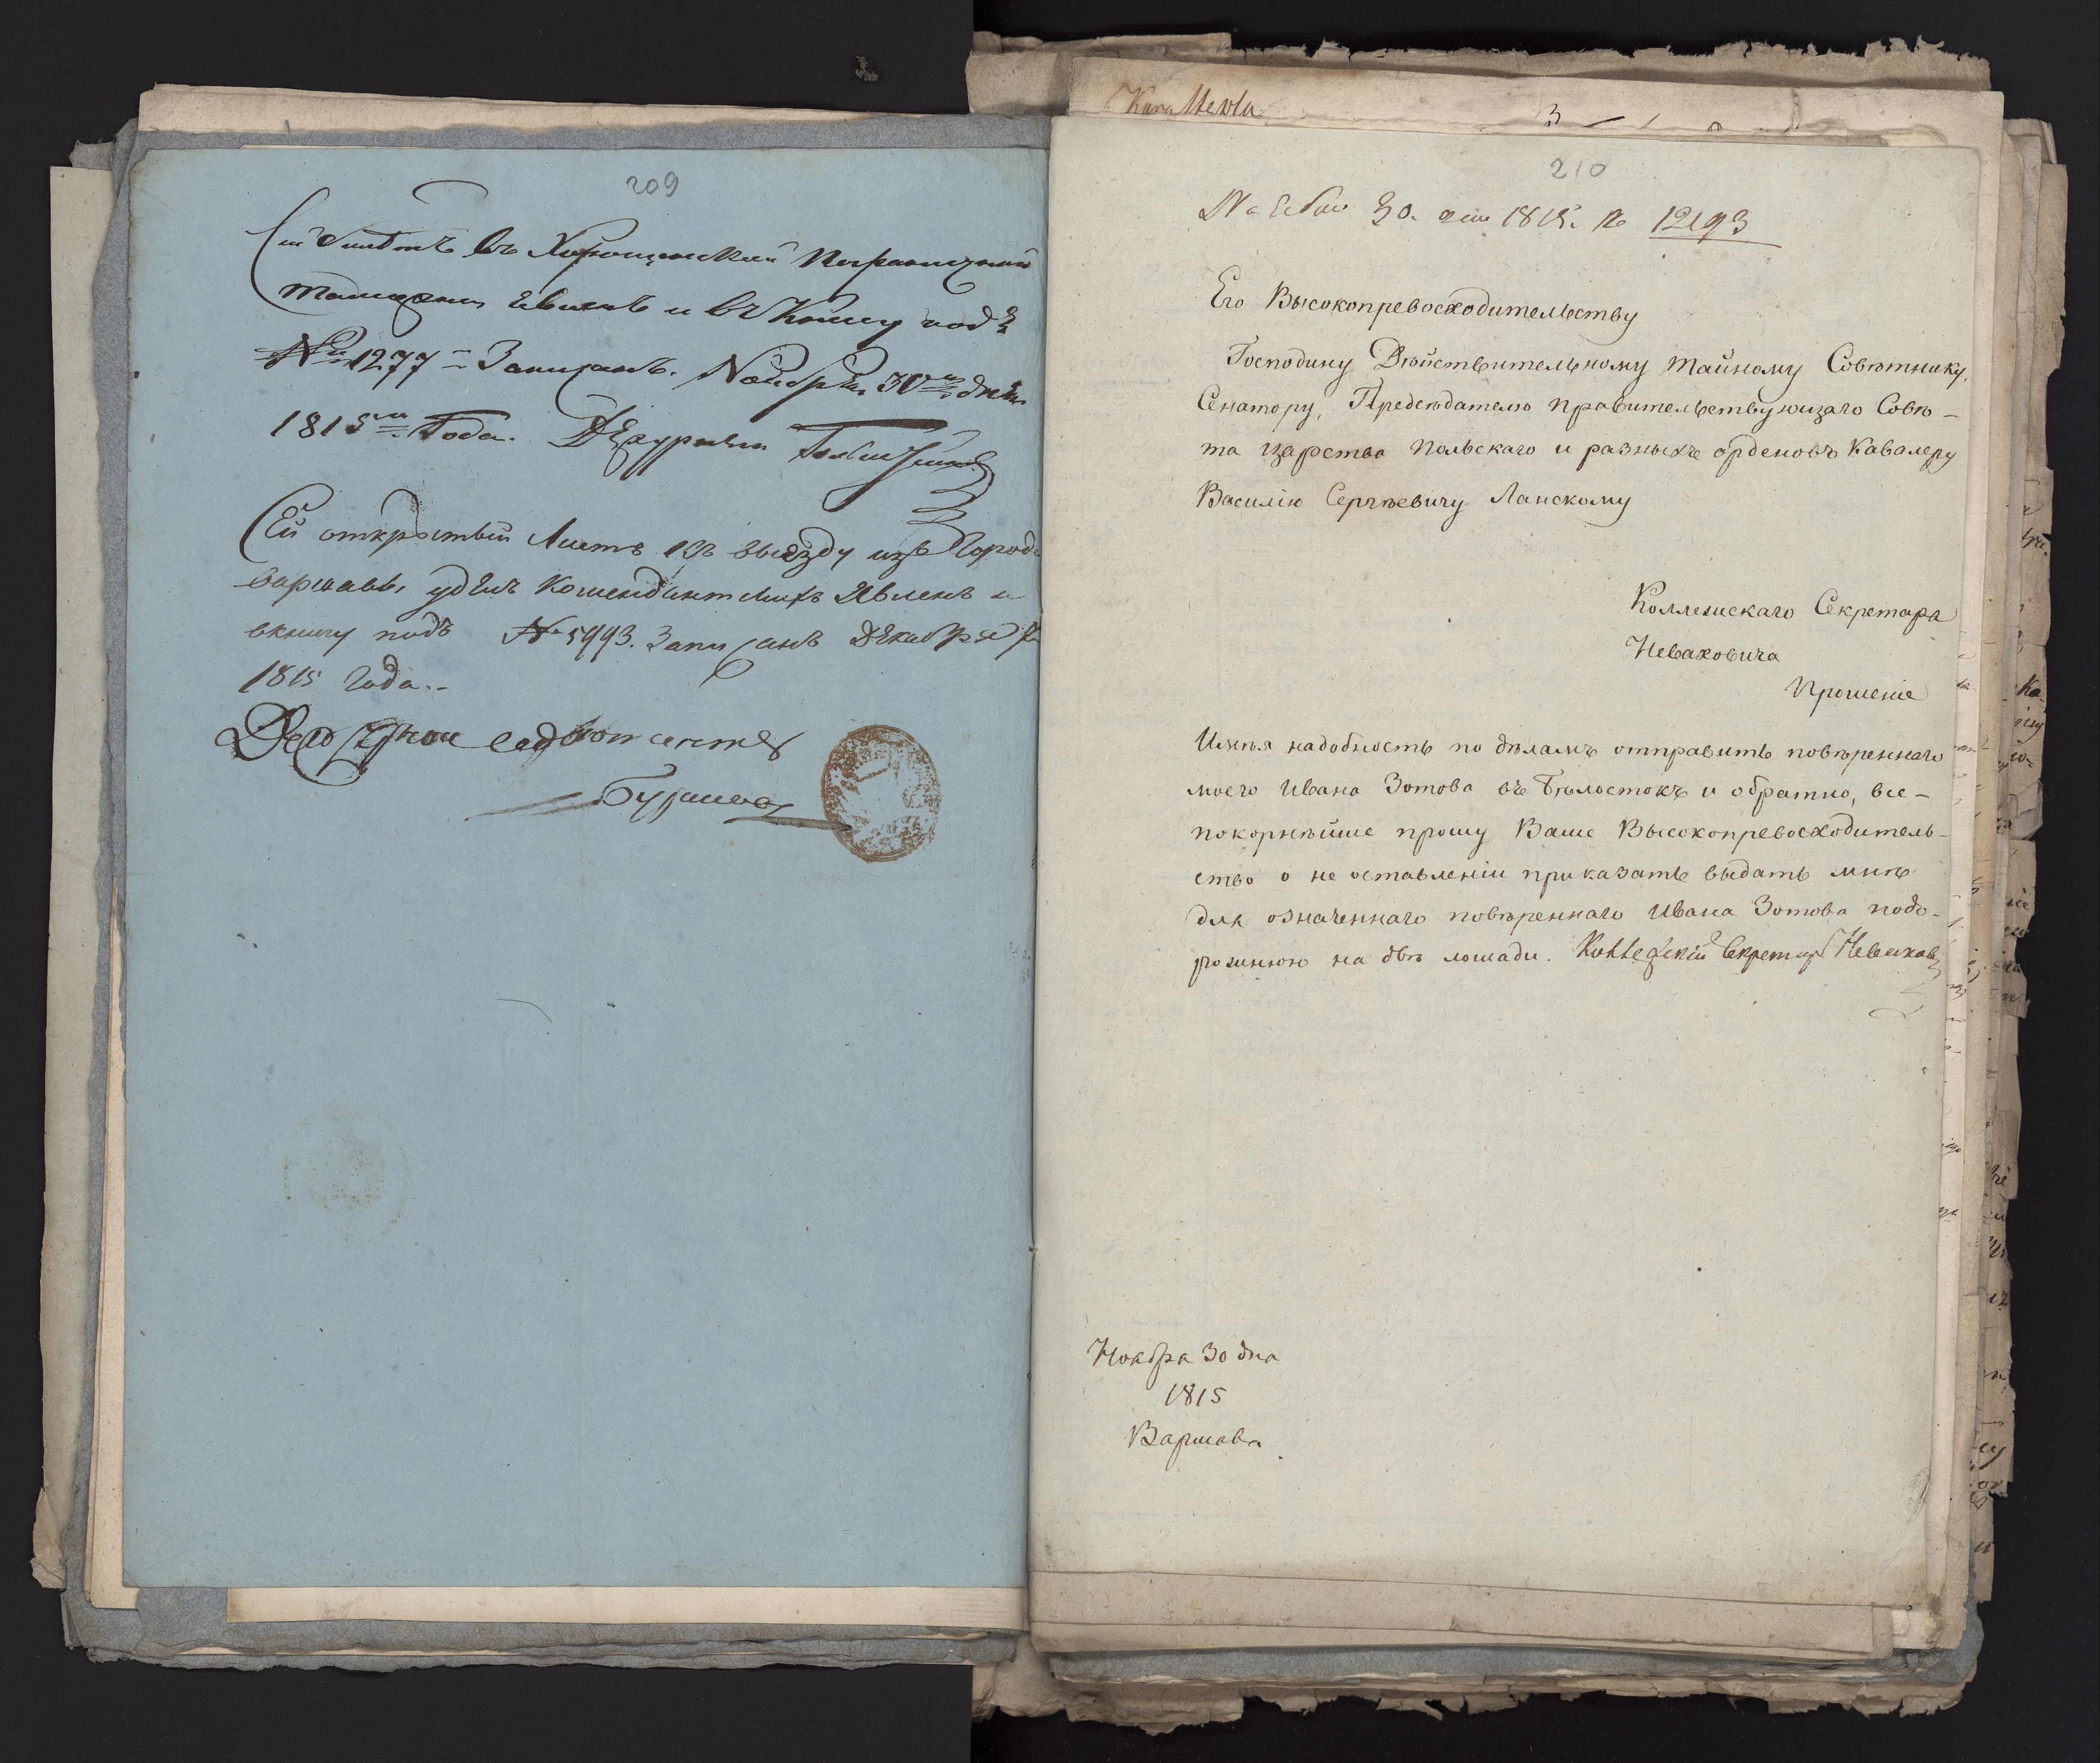 209
Сей билетъ въ Хорощинской пограничной
таможни явленъ и въ книгу подъ
№ 1277 Записанъ. Ноября 30 дня
1815 Года.
Сей открытый Листъ къ выезду изъ Города
варшавы, у дѣлъ комендантскихъ Явленъ и
вкнигу подъ № 5993. Записанъ Декабря
1815 Года..
210
30. 1815. № 12193
Его Высокопревосходительству
Господину Дѣйствительному тайному Совѣтнику,
Сенатору, Предсѣдателю правительствующаго Совѣ-
та царства польскаго и разныхъ орденовъ кавалеру
Василію Сергѣевичу Ланскому
Коллежскаго Секретаря
Неваховича
прошеніе
Имѣя надобность по дѣламъ отправить повѣреннаго
моего Ивана Зотова въ Бѣлостокъ и обратно, все-
покорнѣйше прошу Ваше Высокопревосходитель-
ство о не оставленіи приказать выдать мнѣ
для означеннаго повѣреннаго Ивана Зотова подо-
рожнюю на двѣ лошади. Коллежскій Секретарь Невахов
Ноября 30 дня
1815
Варшава